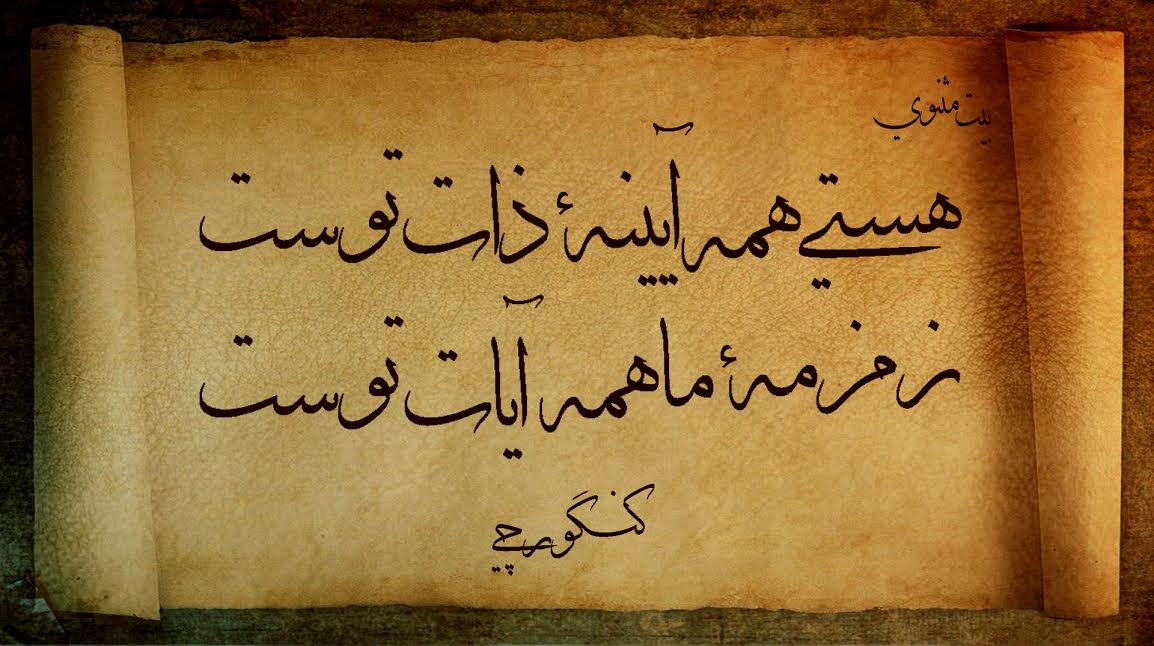 بیت مثنوي
هستي همه آیینهٔ ذات توست
زمزمهٔ ما همه آیات توست
کنگورچي